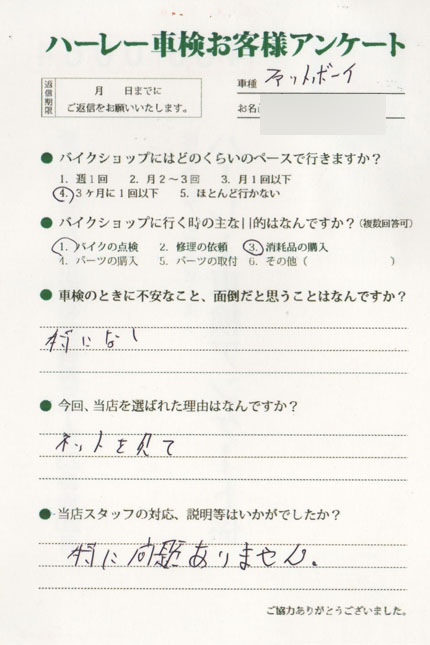 ハーレー車検お客様アンケート
返信期限
月 日までに
ご返信をお願いいたします。
車種 ファットボーイ
お名
● バイクショップにはどのくらいのペースで行きますか？
1. 週1回 2. 月2〜3回 3. 月1回以下
4. 3ヶ月に1回以下 5. ほとんど行かない
● バイクショップに行く時の主な目的はなんですか？（複数回答可）
1. バイクの点検 2. 修理の依頼 3. 消耗品の購入
4. パーツの購入 5. パーツの取付 6. その他（ ）
● 車検のときに不安なこと、面倒だと思うことはなんですか？
特になし
● 今回、当店を選ばれた理由はなんですか？
ネットを見て
● 当店スタッフの対応、説明等はいかがでしたか？
特に問題ありません。
ご協力ありがとうございました。